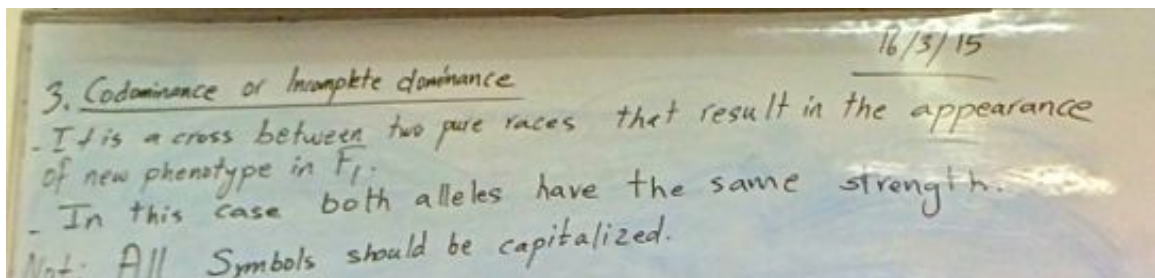 16/3/15
3. Codominance or Incomplete dominance
- It is a cross between two pure races that result in the appearance
of new phenotype in F1.
- In this case both alleles have the same strength.
Not: All Symbols should be capitalized.